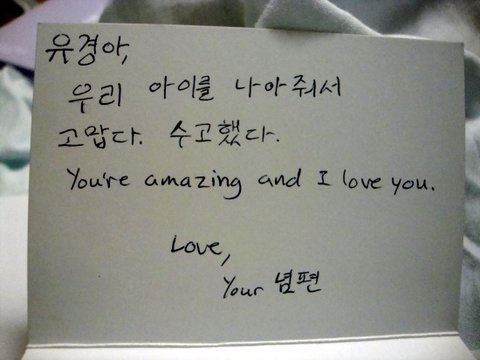 유경아,
우리 아이를 나아줘서
고맙다. 수고했다.
You're amazing and I love you.
Love,
Your 념편